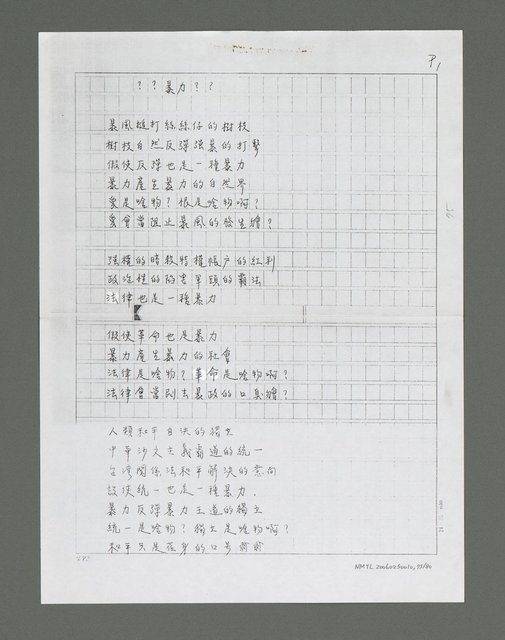 P1
??暴力??
暴風搥打絲絲仔的樹枝
樹枝自然反彈強暴的打擊
假使反彈也是一種暴力
暴力產生暴力的自然界
愛是啥物?恨是啥物啊?
愛會當阻止暴風的發生繪?
強權的暗殺特權帳戶的紅利
政治性的陷害軍頭的霸法
法律也是一種暴力
假使革命也是暴力
暴力產生暴力的社會
法律是啥物?革命是啥物啊?
法律會當刣去暴政的口臭繪?
人類和平自決的獨立
中華沙文主義霸道的統一
台灣關係法和平解決的意向
設使統一也是一種暴力.
暴力反彈暴力王道的獨立
統一是啥物?獨立是啥物啊?
和平只是孤身的口号
NMTL 20060250010, 73/80